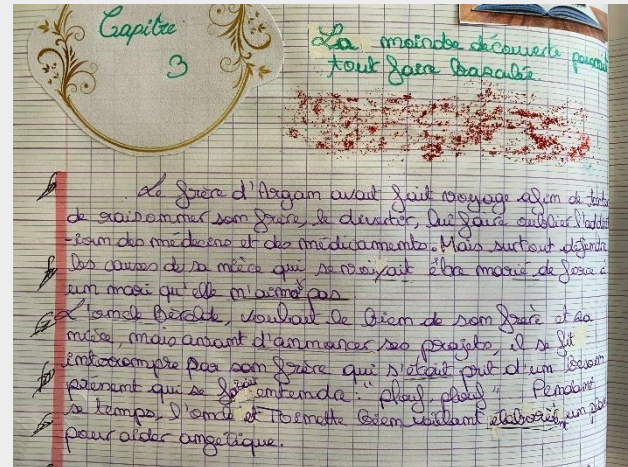 Capitre
3
La moindre découverte pouvait
tout faire basculée
Le frère d'Argam avait fait voyage afin de tenter
de raisonner son frère, le divertir, lui faire oublier l'addict
-ion des médecins et des médicaments. Mais surtout défendre
les causes de sa nièce qui se voiyait être marié de force à
un mari qu'elle n'aimé pas.
L'oncle Béralde, voulait le bien de son frère et sa
nièce, mais avant d'annoncer ses projets, il se fit
interrompre par son frère qui s'était prit d'un besoin
présent qui se faisait entendre : "plouf, plouf". Pendant
se temps, l'oncle et Toinette bien vaillant élaborèrent un plan
pour aider angélique.